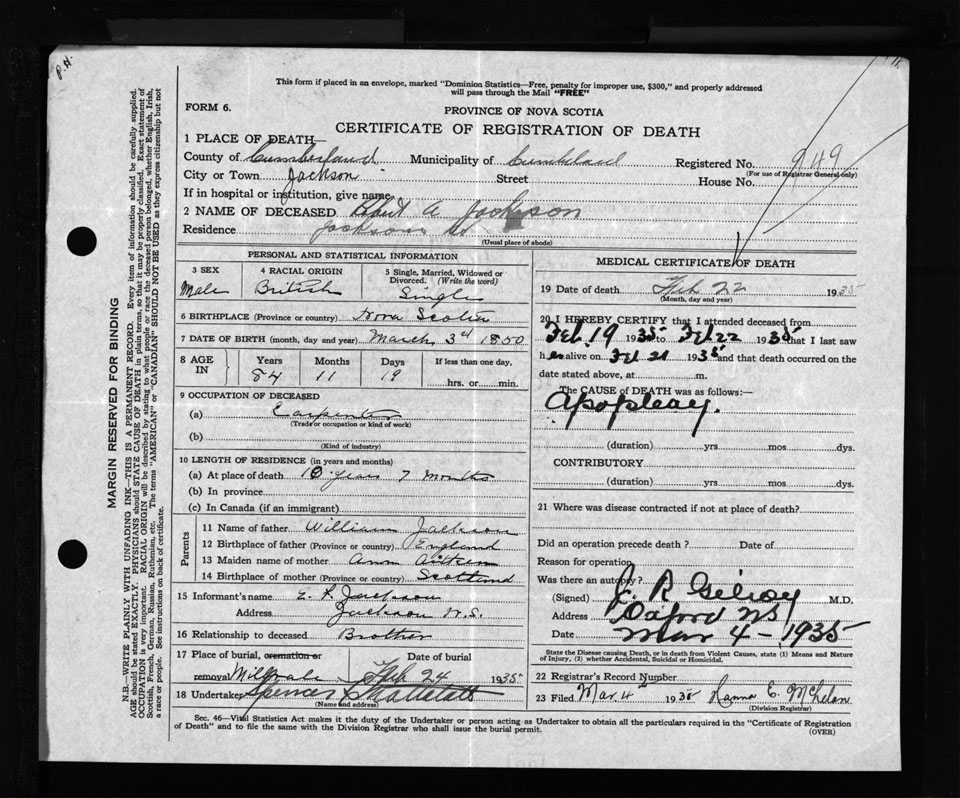 P.H.
This form if placed in an envelope, marked "Dominion Statistics—Free, penalty for improper use, $300," and properly addressed
will pass through the Mail "FREE"
FORM 6.
PROVINCE OF NOVA SCOTIA
CERTIFICATE OF REGISTRATION OF DEATH
1 PLACE OF DEATH
County of Cumberland Municipality of Cumberland Registered No. 949
(For use of Registrar General only)
City or Town Jackson Street House No.
If in hospital or institution, give name
2 NAME OF DECEASED Robert A Jackson
Residence Jacksons
(Usual place of abode)
PERSONAL AND STATISTICAL INFORMATION
3 SEX 4 RACIAL ORIGIN 5 Single, Married, Widowed or Divorced. (Write the word)
Male British Single
6 BIRTHPLACE (Province or country) Nova Scotia
7 DATE OF BIRTH (month, day and year) March 3rd 1850
8 AGE IN Years Months Days If less than one day,
84 11 19 hrs. or min.
9 OCCUPATION OF DECEASED
(a) Carpenter
(Trade or occupation or kind of work)
(b)
(Kind of industry)
10 LENGTH OF RESIDENCE (in years and months)
(a) At place of death 10 years 7 Months
(b) In province
(c) In Canada (if an immigrant)
Parents
11 Name of father William Jackson
12 Birthplace of father (Province or country) England
13 Maiden name of mother Ann Aitken
14 Birthplace of mother (Province or country) Scotland
15 Informant's name Jackson
Address Jackson N.S.
16 Relationship to deceased Brother
17 Place of burial, cremation or removal Millvale Date of burial Feb 24 1935
18 Undertaker Spencer
(Name and address)
MEDICAL CERTIFICATE OF DEATH
19 Date of death Feb 22 1935
(Month, day and year)
20 I HEREBY CERTIFY that I attended deceased from
Feb. 19 1935 to Feb 22 1935 that I last saw
h alive on Feb 21 1935 and that death occurred on the
date stated above, at m.
The CAUSE of DEATH was as follows:—
Apoplexy.
(duration) yrs mos. dys.
CONTRIBUTORY
(duration) yrs. mos. dys.
21 Where was disease contracted if not at place of death?
Did an operation precede death? Date of
Reason for operation
Was there an autopsy?
(Signed) J. R Gilroy M.D.
Address Oxford NS
Date Mar 4 - 1935
State the Disease causing Death, or in death from Violent Causes, state (1) Means and Nature
of Injury, (2) whether Accidental, Suicidal or Homicidal.
22 Registrar's Record Number
23 Filed Mar. 4th 1935
(Division Registrar)
Sec. 46—Vital Statistics Act makes it the duty of the Undertaker or person acting as Undertaker to obtain all the particulars required in the "Certificate of Registration
of Death" and to file the same with the Division Registrar who shall issue the burial permit.
(OVER)
MARGIN RESERVED FOR BINDING
N.B.—WRITE PLAINLY WITH UNFADING INK—THIS IS A PERMANENT RECORD. Every item of information should be carefully supplied.
AGE should be stated EXACTLY. PHYSICIANS should STATE CAUSE OF DEATH in plain terms, so that it may be properly classified. Exact statement of
OCCUPATION is very important. RACIAL ORIGIN will be described by stating to what people or race the deceased person belonged, whether English, Irish,
Scottish, French, German, Russian, Ruthenian, etc. The terms "AMERICAN" or "CANADIAN" SHOULD NOT BE USED as they express citizenship but not
a race or people. See instructions on back of certificate.